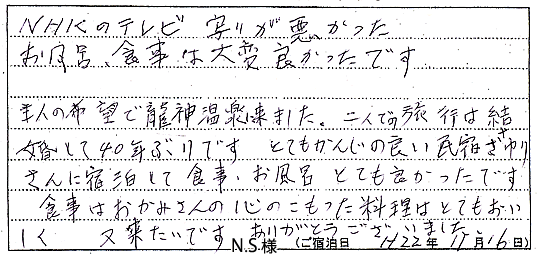 NHKのテレビ 写りが悪かった
お風呂、食事は大変良かったです
主人の希望で龍神温泉来ました。二人での旅行は結
婚して40年ぶりです とてもかんじの良い民宿さゆり
さんに宿泊して食事・お風呂 とても良かったです
食事はおかみさんの心のこもった料理はとてもおい
しく 又来たいです ありがとうございました
N.S.様 (ご宿泊日 H22年 11月16日)